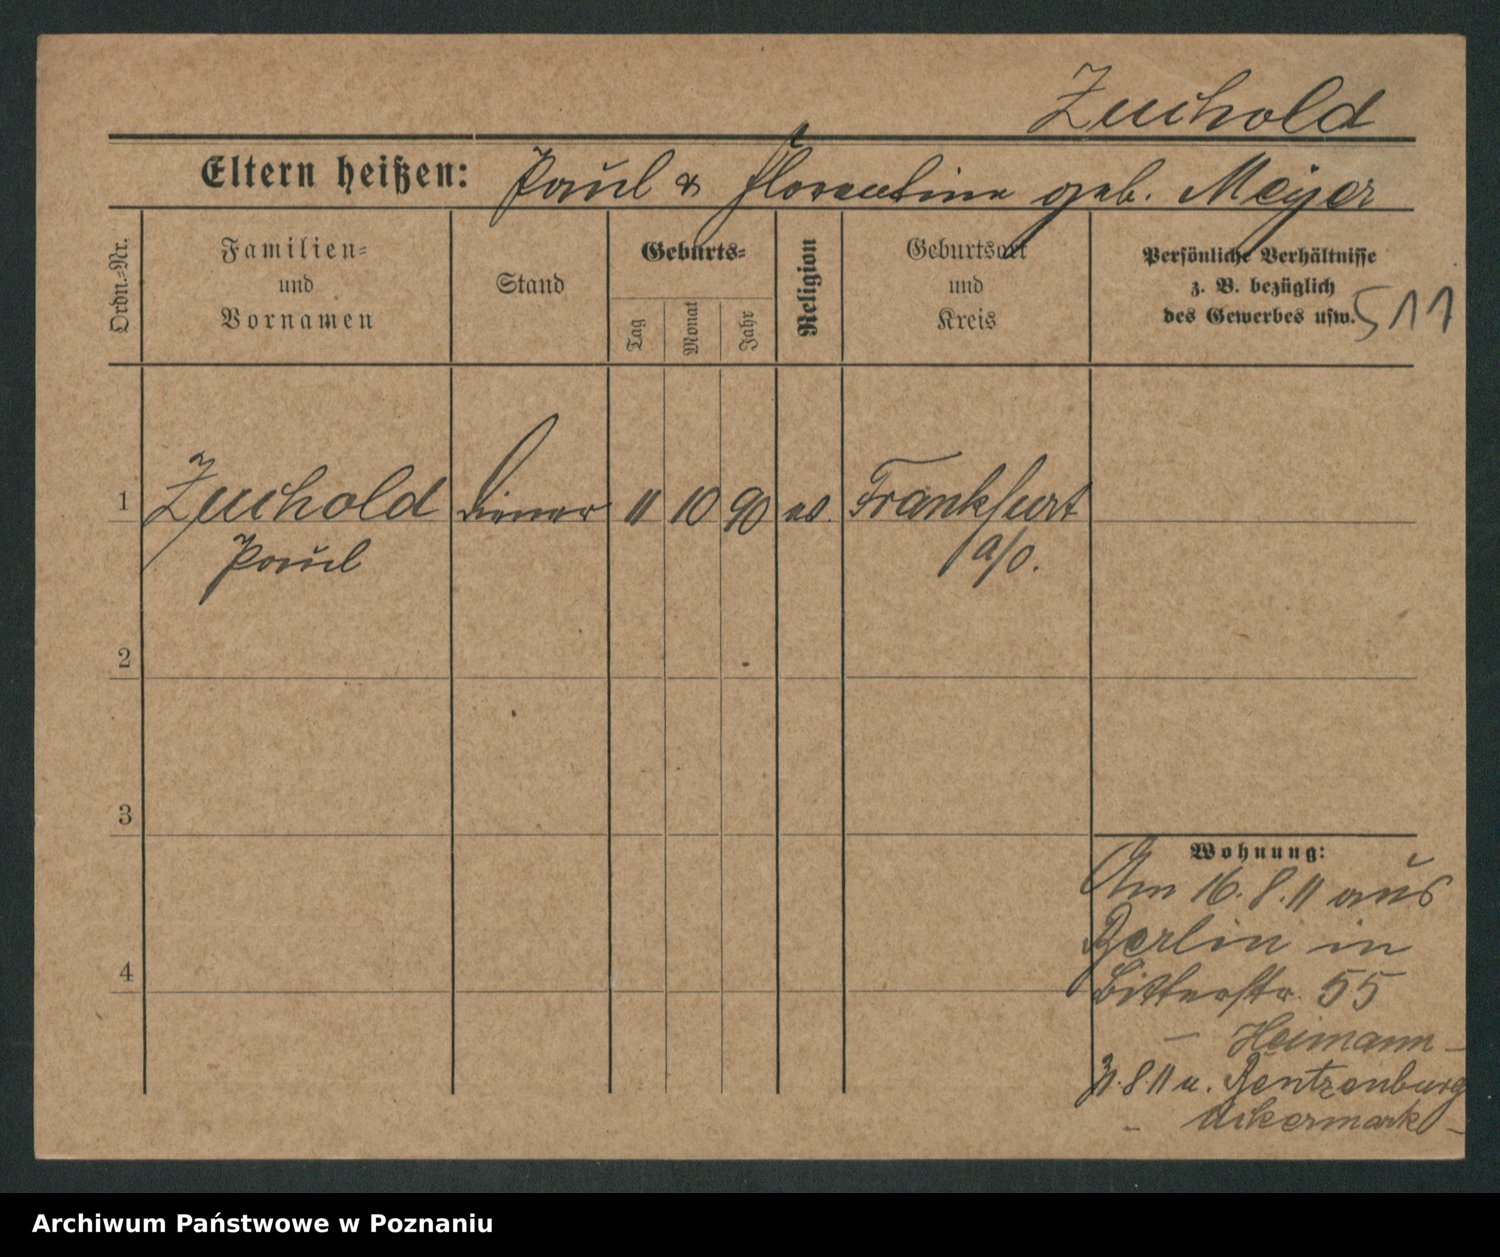 Zuchold
Eltern heißen: Paul & Florentine geb. Meyer
Ordn.-Nr.
Familien-
und
Vornamen
Stand
Geburts-
Tag
Monat
Jahr
Religion
Geburtsort
und
Kreis
Persönliche Verhältnisse
z. B. bezüglich
des Gewerbes usw.
511
1 Zuchold Diener 11 10 90 ev. Frankfurt
Paul a/O.
2
3
4
Wohnung:
Am 16.8.11 aus
Berlin in
Ritterstr. 55
– Heimann –
31.8.11 n. Bentzenburg
– Uckermark –
Archiwum Państwowe w Poznaniu